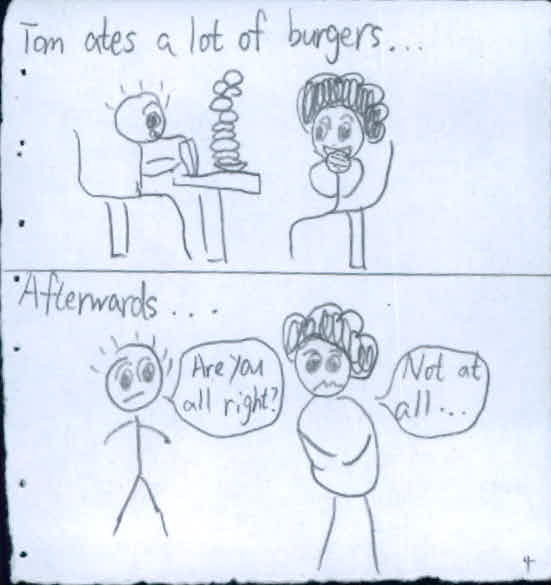 Tom ates a lot of burgers...
Afterwards...
Are you
all right?
Not at
all...
4